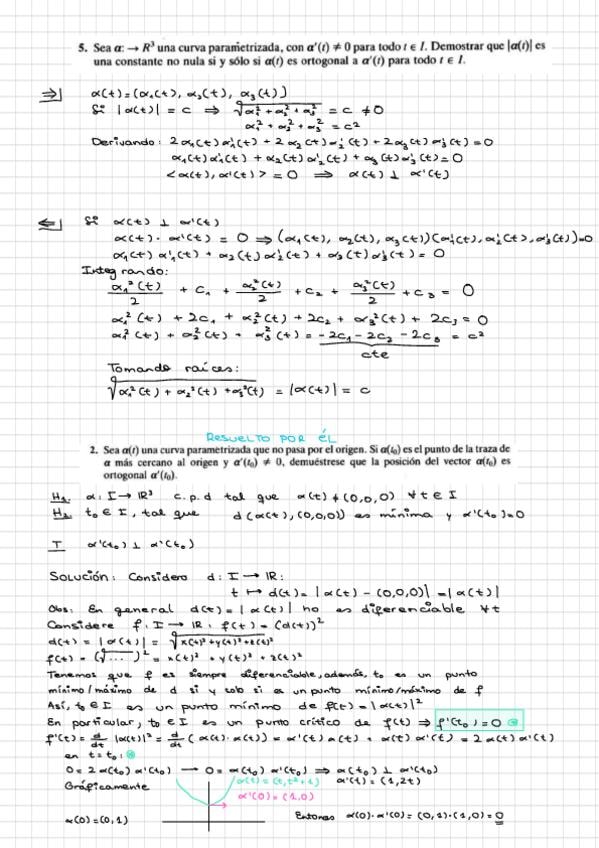 5. Sea α: → R³ una curva parametrizada, con α'(t) ≠ 0 para todo t ∈ I. Demostrar que |α(t)| es
una constante no nula si y sólo si α(t) es ortogonal a α'(t) para todo t ∈ I.
⇒| α(t)=(α₁(t), α₂(t), α₃(t))
Si |α(t)| = c ⇒ √(α₁² + α₂² + α₃²) = c ≠ 0
α₁² + α₂² + α₃² = c²
Derivando: 2α₁(t)α₁'(t) + 2α₂(t)α₂'(t) + 2α₃(t)α₃'(t) = 0
α₁(t)α₁'(t) + α₂(t)α₂'(t) + α₃(t)α₃'(t) = 0
<α(t), α'(t)> = 0 ⇒ α(t) ⊥ α'(t)
⇐| Si α(t) ⊥ α'(t)
α(t) · α'(t) = 0 ⇒ (α₁(t), α₂(t), α₃(t))(α₁'(t), α₂'(t), α₃'(t))=0
α₁(t) α₁'(t) + α₂(t) α₂'(t) + α₃(t) α₃'(t) = 0
Integrando:
α₁²(t)/2 + c₁ + α₂²(t)/2 + c₂ + α₃²(t)/2 + c₃ = 0
α₁²(t) + 2c₁ + α₂²(t) + 2c₂ + α₃²(t) + 2c₃ = 0
α₁²(t) + α₂²(t) + α₃²(t) = -2c₁ - 2c₂ - 2c₃ = c²
cte
Tomando raíces:
√(α₁²(t) + α₂²(t) + α₃²(t)) = |α(t)| = c
RESUELTO POR ÉL
2. Sea α(t) una curva parametrizada que no pasa por el origen. Si α(t₀) es el punto de la traza de
α más cercano al origen y α'(t₀) ≠ 0, demuéstrese que la posición del vector α(t₀) es
ortogonal α'(t₀).
H₁ α: I → IR³ c.p.d tal que α(t) ≠ (0,0,0) ∀t ∈ I
H₂ t₀ ∈ I, tal que d(α(t), (0,0,0)) es mínima y α'(t₀)=0
T α'(t₀) ⊥ α(t₀)
SOLUCIÓN: Considero d: I → IR:
t ↦ d(t) = |α(t) - (0,0,0)| = |α(t)|
Obs: En general d(t) = |α(t)| no es diferenciable ∀t
Considere f: I → IR: f(t) = (d(t))²
d(t) = |α(t)| = √(x(t)² + y(t)² + z(t)²)
f(t) = (√...)² = x(t)² + y(t)² + z(t)²
Tenemos que f es siempre diferenciable, además, t₀ es un punto
mínimo/máximo de d si y solo si es un punto mínimo/máximo de f
Así, t₀ ∈ I es un punto mínimo de f(t) = |α(t)|²
En particular, t₀ ∈ I es un punto crítico de f(t) ⇒ f'(t₀) = 0
f'(t) = d/dt |α(t)|² = d/dt (α(t) · α(t)) = α'(t) α(t) + α(t) α'(t) = 2α(t) α'(t)
en t = t₀:
0 = 2α(t₀) α'(t₀) → 0 = α(t₀) α'(t₀) ⇒ α(t₀) ⊥ α'(t₀)
Gráficamente α(t) = (t, t²+1) α'(t) = (1, 2t)
α'(0) = (1,0)
α(0) = (0,1) Entonces α(0) · α'(0) = (0,1) · (1,0) = 0